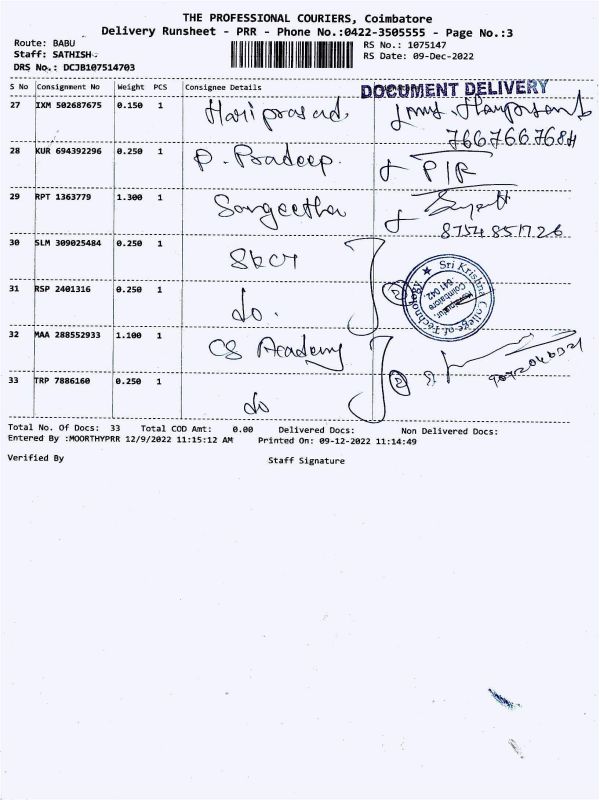 THE PROFESSIONAL COURIERS, Coimbatore
Delivery Runsheet - PRR - Phone No.:0422-3505555 - Page No.:3
Route: BABU
RS No.: 1075147
Staff: SATHISH
RS Date: 09-Dec-2022
DRS No.: DCJB107514703
S No Consignment No Weight PCS Consignee Details
DOCUMENT DELIVERY
27 IXM 502687675 0.150 1 Hariprasad.
7667667684
28 KUR 694392296 0.250 1 P. Pradeep. P/R
29 RPT 1363779 1.300 1 Sangeetha
8754851726
30 SLM 309025484 0.250 1 SKCT
Sri Krishna College of Technology
Coimbatore
641 042
31 RSP 2401316 0.250 1 do. 2
32 MAA 288552933 1.100 1 CS Academy
33 TRP 7886160 0.250 1 do 2
Total No. Of Docs: 33 Total COD Amt: 0.00 Delivered Docs: Non Delivered Docs:
Entered By :MOORTHYPRR 12/9/2022 11:15:12 AM Printed On: 09-12-2022 11:14:49
Verified By Staff Signature